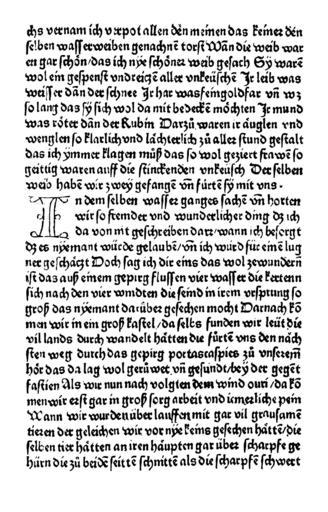 chs vernam ich vᷣrpot allen den meinen das keiner den
selben wasserweiben genachnē torst Wān die weib war
en gar schön/ das ich nye schöner weib gesach Sy warē
wol ein gespenst vnd reiczē aller vnkeüschē Jr leib was
weisser dān der schnee Jr har was feingoldfar vn̄ wz
so lang das sy sich wol da mit bedeckē möchten Jr mund
was röter dān der Rubin Darzů waren ir äuglen vnd
wenglen so klarlich vnd lächterlich zů aller stund gestalt
das ich ymmer klagen můß das so wol geziert frawē so
geittig waren auff die stinckenden vnkeüsch Der selben
weib habē wir zwey gefangē vn̄ fürtē sy mit vns ·
IN dem selben wasser ganges sachē vn̄ horten
wir so fremder vnd wunderlicher ding dz ich
da von nit geschreiben dar/ wann ich besorgt
dz es nyemant würde gelaubē/ vn̄ ich wurd für eine lug
ner geschäczt Doch sag ich dir eins das wol zewundern
ist das auß einem gepirg flussen vier wasser die kertenn
sich nach den vier windten die seind in irem vrsprung so
groß das nyemant darüber gesechen mocht Darnach kō
men wir in ein groß kastel/ da selbs funden wir leüt die
vil lands durch wandelt hätten die fürtē vns den näch
sten weg durch das gepirg portascaspies zů vnserem̄
hör das da lag wol gerüwet vn̄ gesundt/ bey der gegent
fastien Als wir nun nach volgten dem wind ouri/ da kō
men wir erst gar in groß sorg arbeit vnd iämerliche pein
Wann wir wurden über lauffen mit gar vil grausamē
tieren der geleichen wir vor nye keins gesechen hättē/ die
selben tier hätten an iren häupten gar über scharpfe ge
hürn die zů beidē seittē schnittē als die scharpfen schwert